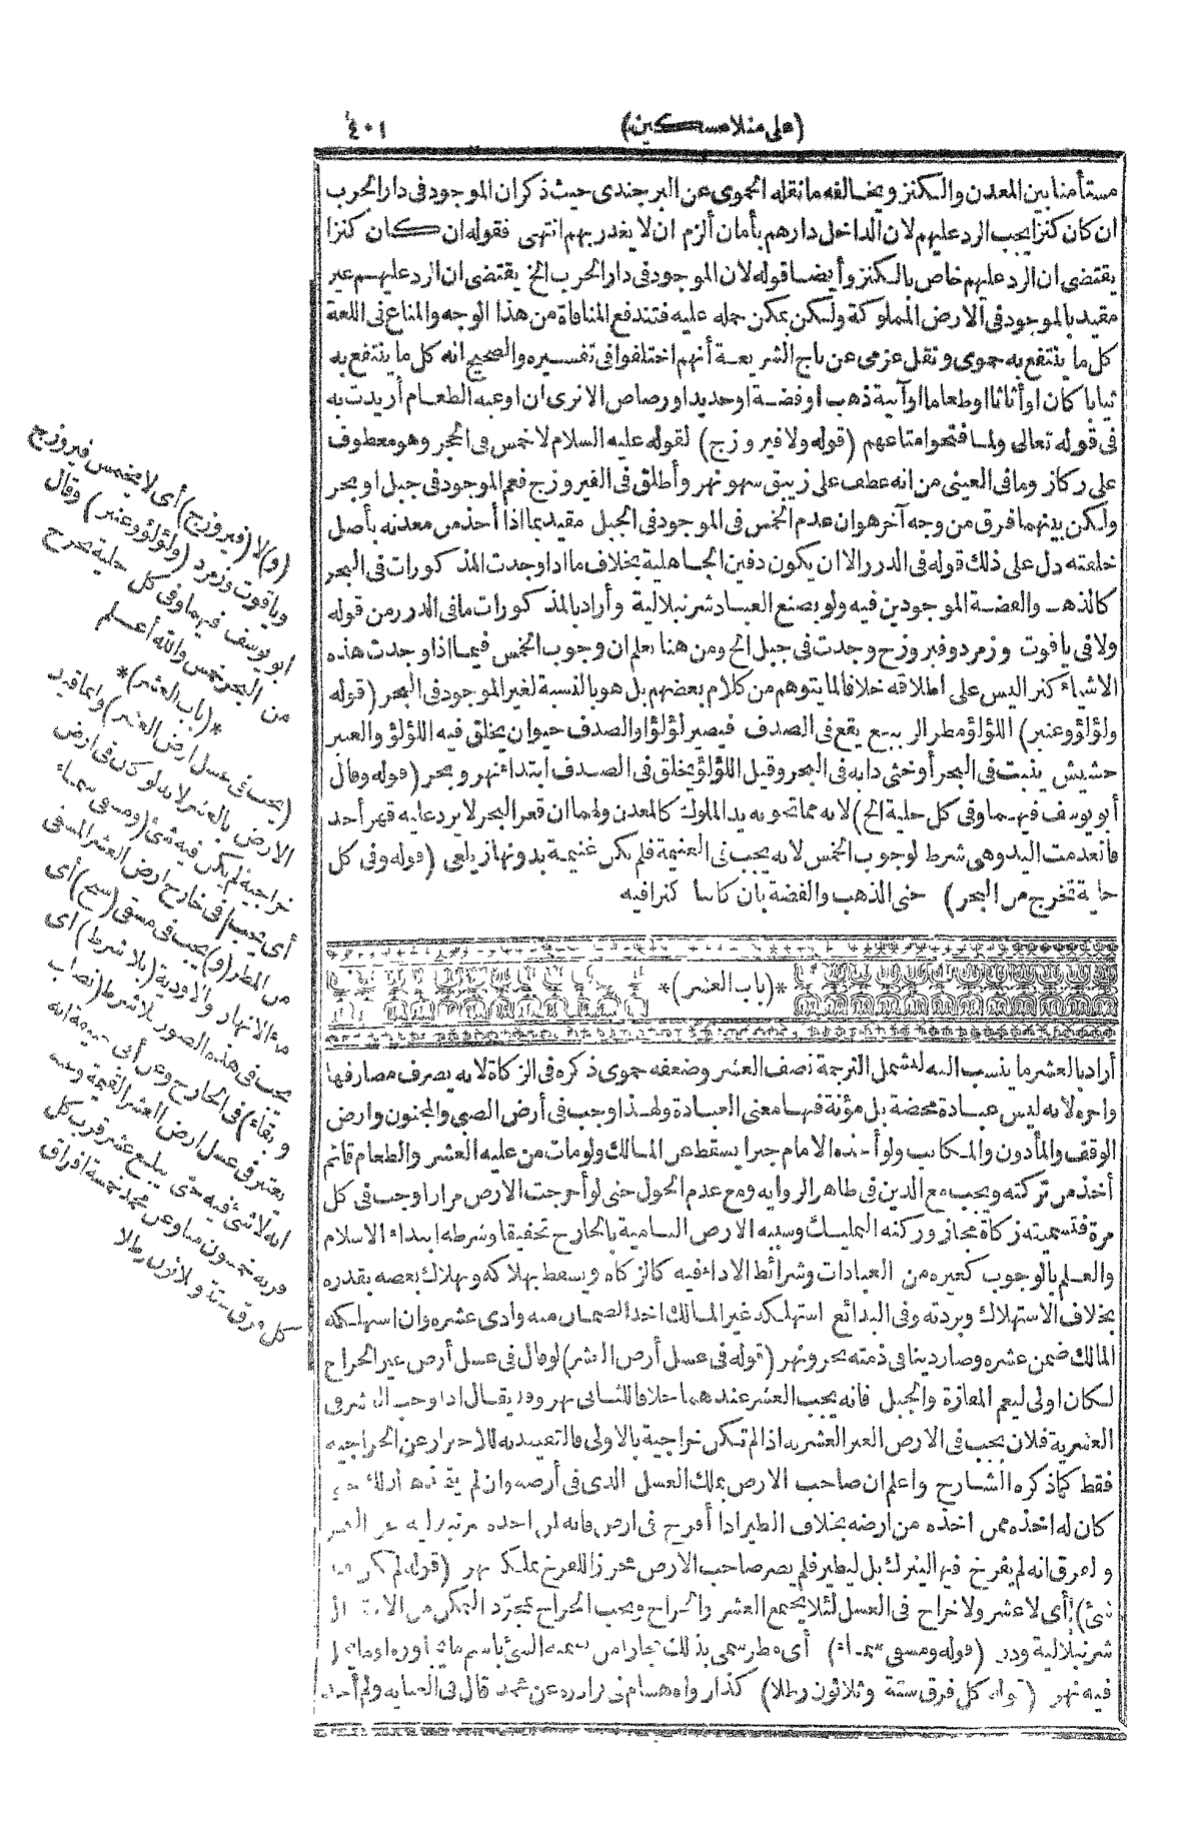 (على منلا مسكين) ٤٠١
مستأمنا بين المعدن والكنز ويخالفه مانقله الحموى عن البرجندى حيث ذكر ان الموجود فى دار الحرب
ان كان كنزا يجب الرد عليهم لان الداخل دارهم بأمان ألزم ان لا يغدر بهم انتهى فقوله ان كان كنزا
يقتضى ان الرد عليهم خاص بالكنز وأيضا قوله لان الموجود فى دار الحرب الخ يقتضى ان الرد عليهم غير
مقيد بالموجود فى الارض المملوكة ولكن يمكن حمله عليه فتندفع المنافاة من هذا الوجه والمتاع فى اللغة
كل ما ينتفع به حموى ونقل عزمى عن تاج الشريعة أنهم اختلفوا فى تفسيره والصحيح انه كل ما ينتفع به
ثيابا كان او أثاثا او طعاما او آنية ذهب او فضة او حديد او رصاص الا ترى ان اوعية الطعام أريدت به
فى قوله تعالى ولما فتحوا متاعهم (قوله ولا فيروزج) لقوله عليه السلام لا خمس فى الحجر وهو معطوف
على ركاز وما فى العينى من انه عطف على زيبق سهو نهر وأطلق فى الفيروزج فعم الموجود فى جبل او بحر
ولكن بينهما فرق من وجه آخر هو ان عدم الخمس فى الموجود فى الجبل مقيد بما اذا أخذ من معدنه بأصل
خلقته دل على ذلك قوله فى الدرر الا ان يكون دفين الجاهلية بخلاف ما اذا وجدت المذكورات فى البحر
كالذهب والفضة الموجودين فيه ولو بصنع العباد شرنبلالية وأراد بالمذكورات ما فى الدرر من قوله
ولا فى ياقوت وزمرد وفيروزج وجدت فى جبل الخ ومن هنا يعلم ان وجوب الخمس فيما اذا وجدت هذه
الاشياء كنزا ليس على اطلاقه خلافا لما يتوهم من كلام بعضهم بل هو بالنسبة لغير الموجود فى البحر (قوله
ولؤلؤ وعنبر) اللؤلؤ مطر الربيع يقع فى الصدف فيصير لؤلؤا والصدف حيوان يخلق فيه اللؤلؤ والعنبر
حشيش ينبت فى البحر أو خثى دابه فى البحر وقيل اللؤلؤ يخلق فى الصدف ابتداء نهر وبحر (قوله وقال
أبو يوسف فيهما وفى كل حلية الخ) لانه مما تحويه يد الملوك كالمعدن ولهما ان قعر البحر لا يرد عليه قهر أحد
فانعدمت اليد وهى شرط لوجوب الخمس لانه يجب فى الغنيمة فلم يكن غنيمة بدونها زيلعى (قوله وفى كل
حلية تخرج من البحر) حتى الذهب والفضة بان كانا كنزا فيه
*(باب العشر)*
أراد بالعشر ما ينسب اليه لتشمل الترجمة نصف العشر وضعفه حموى ذكره فى الزكاة لانه يصرف مصارفها
واخره لانه ليس عبادة محضة بل مؤنة فيها معنى العبادة ولهذا وجب فى أرض الصبى والمجنون وارض
الوقف والمأذون والمكاتب ولو أخذه الامام جبرا يسقط عن المالك ولو مات من عليه العشر والطعام قائم
أخذ من تركته ويجب مع الدين فى ظاهر الروايه ومع عدم الحول حتى لو أخرجت الارض مرارا وجب فى كل
مرة فتسميته زكاة مجاز وركنه التمليك وسببه الارض النامية بالخارج تحقيقا وشرطه ابتداء الاسلام
والعلم بالوجوب كغيره من العبادات وشرائط الاداء فيه كالزكاه ويسقط بهلاكه وبهلاك بعضه بقدره
بخلاف الاستهلاك وبردته وفى البدائع استهلكه غير المالك اخذ الضمان منه وادى عشره وان استهلكه
المالك ضمن عشره وصار دينا فى ذمته بحر ونهر (قوله فى عسل أرض العشر) لو قال فى عسل أرض غير الخراج
لكان اولى ليعم المفازة والجبل فانه يجب العشر عندهما خلافا للثانى نهر وقد يقال اذا وجب العشر فى
العشرية فلان يجب فى الارض الغير العشريه اذا لم تكن خراجية بالاولى فالتقييد به للاحتراز عن الخراجيه
فقط كما ذكره الشارح واعلم ان صاحب الارض يملك العسل الذى فى أرضه وان لم يتخذها لذلك حتى
كان له اخذه ممن اخذه من ارضه بخلاف الطير اذا أفرخ فى ارض فانه لمن اخذه
والفرق انه لم يفرخ فيها ليترك بل ليطير فلم يصر صاحب الارض محرزا للفرخ بملكه نهر (قوله لم يكن فيه
شئ) أى لا عشر ولا خراج فى العسل لئلا يجتمع العشر والخراج ويجب الخراج بمجرد التمكن من
شرنبلالية ودر (قوله ومسقى سماء) أى مطر سمى بذلك مجازا من تسمية الشئ باسم ما يجاوره
فيه نهر (قوله كل فرق ستة وثلاثون رطلا) كذا رواه هشام فى نوادره عن محمد قال فى العنايه ولم أجد
(و) لا (فيروزج) أى لا يخمس فيروزج
وياقوت وزمرد (ولؤلؤ وعنبر) وقال
ابو يوسف فيهما وفى كل حلية تخرج
من البحر خمس والله أعلم
*(باب العشر)*
(يجب فى عسل ارض العشر) وانما قيد
الارض بالعشر لانه لو كان فى ارض
خراجية لم يكن فيه شئ (ومسقى سماء)
أى يجب فى خارج ارض العشر المسقى
من المطر (و) يجب فى مسقى (سيح) أى
ماء الانهار والاودية (بلا شرط) أى
يجب فى هذه الصور بلا شرط (نصاب
وبقاء) فى الخارج وعن أبى يوسف انه
يعتبر فى عسل ارض العشر القيمة وعنه
انه لا شئ فيه حتى يبلغ عشر قرب كل
قربة خمسون منا وعن محمد خمسة افراق
كل فرق ستة وثلاثون رطلا